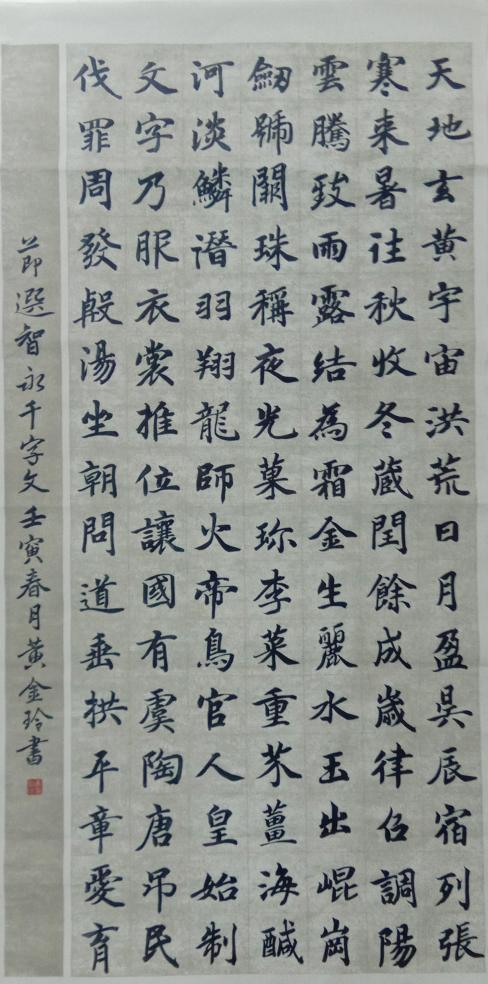 天地玄黄宇宙洪荒日月盈昃辰宿列張
寒来暑往秋收冬蔵閏餘成歲律召調陽
雲騰致雨露結為霜金生麗水玉出崐崗
劒號闕珠稱夜光菓珎李菜重芥薑海醎
河淡鱗潛羽翔龍師火帝鳥官人皇始制
文字乃服衣裳推位讓國有虞陶唐吊民
伐罪周發殷湯坐朝問道垂拱平章愛育
節選智永千字文壬寅春月黄金玲書